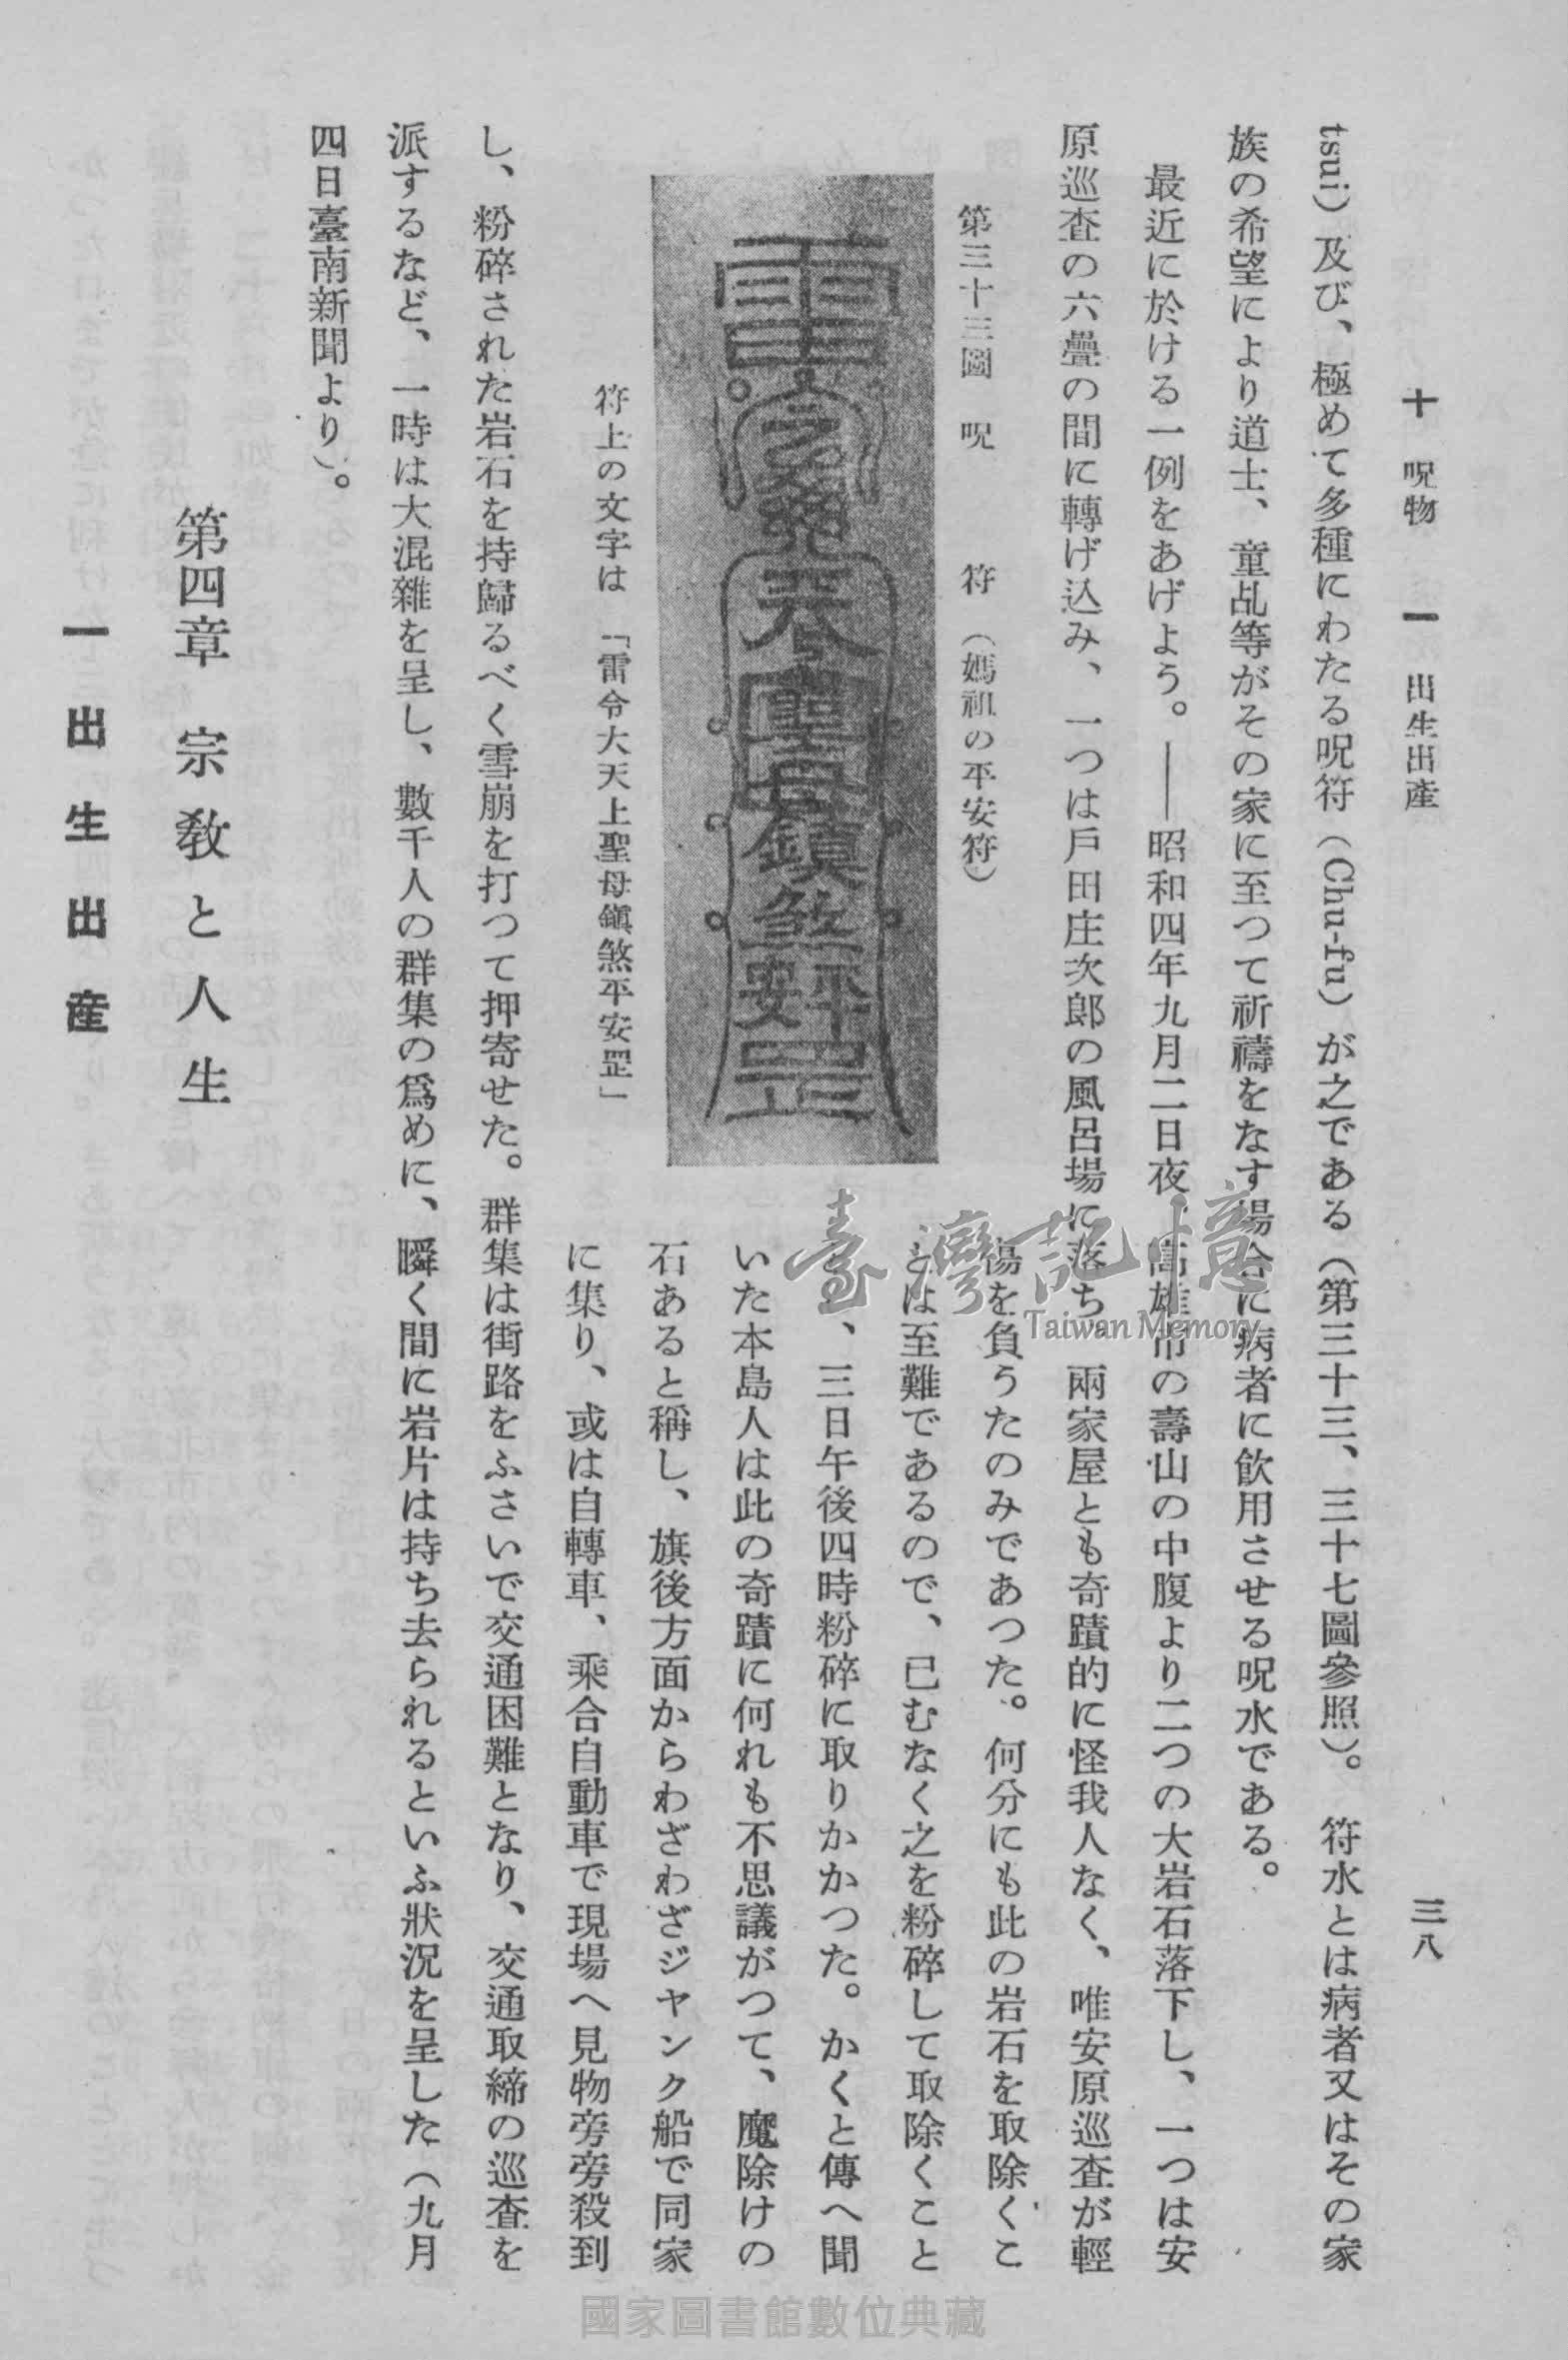 十　呪物　一　出生出產
三八
tsui）及び、極めて多種にわたる呪符（Chu-fu）が之である（第三十三、三十七圖參照）。　符水とは病者又はその家
族の希望により道士、童乩等がその家に至つて祈禱をなす場合に病者に飲用させる呪水である。
最近に於ける一例をあげよう。――昭和四年九月二日夜、高雄市の壽山の中腹より二つの大岩石落下し、一つは安
原巡査の六疊の間に轉げ込み、一つは戶田庄次郎の風呂場に落ち、兩家屋とも奇蹟的に怪我人なく、唯安原巡査が輕
傷を負うたのみであつた。何分にも此の岩石を取除くこ
とは至難であるので、已むなく之を粉碎して取除くこと
、三日午後四時粉碎に取りかかつた。かくと傳へ聞
いた本島人は此の奇蹟に何れも不思議がつて、魔除けの
石あると稱し、旗後方面からわざわざジヤンク船で同家
に集り、或は自轉車、乘合自動車で現場へ見物旁旁殺到
第三十三圖　呪　符　（媽祖の平安符）
雷令大天上聖母鎭煞平安罡
符上の文字は　「雷令大天上聖母鎭煞平安罡」
し、粉碎された岩石を持歸るべく雪崩を打つて押寄せた。群集は街路をふさいで交通困難となり、交通取締の巡査を
派するなど、一時は大混雜を呈し、數千人の群集の爲めに、瞬く間に岩片は持ち去られるといふ狀況を呈した（九月
四日臺南新聞より）。
第四章　宗教と人生
一　出生出產
臺灣記憶
Taiwan Memory
國家圖書館數位典藏